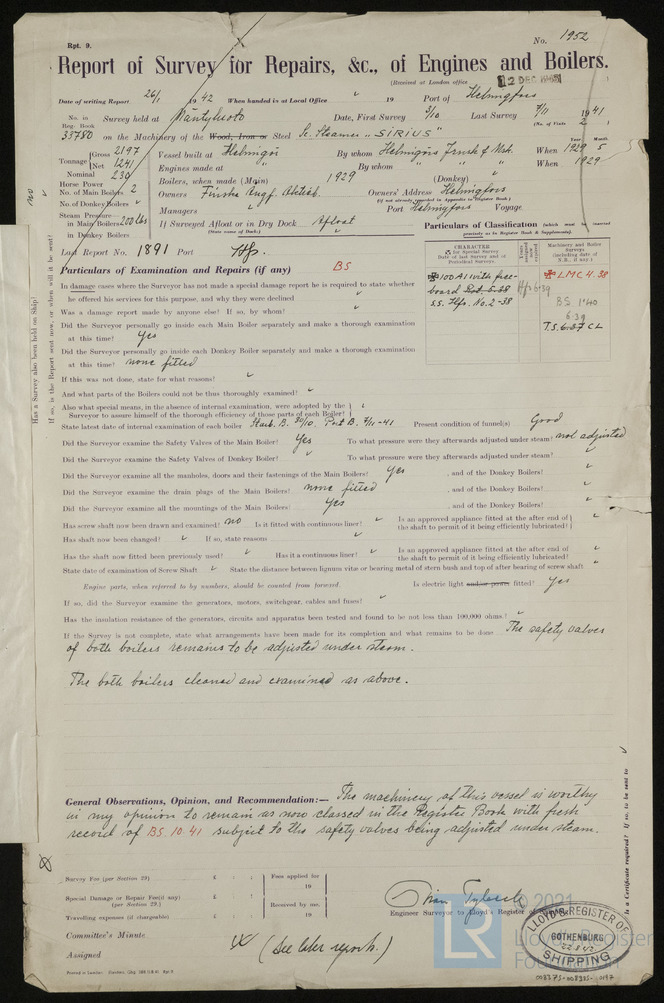 Rpt. 9.
No. 1952
Report of Survey for Repairs, &c., of Engines and Boilers.
(Received at London office 12 DEC
Date of writing Report 26/1 1942 When handed in at Local Office 19 Port of Helsingfors
No. in Reg. Book 33780 Survey held at Mäntyluoto Date, First Survey 3/10 Last Survey 7/11 1941
(No. of Visits 2)
on the Machinery of the Wood, Iron or Steel Sc. Steamer "SIRIUS"
Tonnage Gross 2197 Net 1241
Vessel built at Helsingör By whom Helsingörs When Year 1929 Month 5
Engines made at " By whom " When 1929
Nominal Horse Power 230
Boilers, when made (Main) 1929 (Donkey)
No. of Main Boilers 2
Owners Finska Ångf. Aktieb. Owners' Address Helsingfors
(if not already recorded in Appendix to Register Book)
No. of Donkey Boilers
Managers Port Helsingfors Voyage
Steam Pressure in Main Boilers 200 lbs
in Donkey Boilers
If Surveyed Afloat or in Dry Dock Afloat
(State name of Dock.)
Particulars of Classification (which must be inserted precisely as in Register Book & Supplements).
Last Report No. 1891 Port Hfs.
CHARACTER for Special Survey Date of last Survey and of Periodical Surveys.
Machinery and Boiler Surveys (including date of N.B., if any).
100A1 with free-
board Dat. 5.38
S.S. Hfs. No. 2-38
Hfs 6.39
LMC 4.38
BS 1.40
6.39
T.S. 6.37 CL
Particulars of Examination and Repairs (if any) BS
In damage cases where the Surveyor has not made a special damage report he is required to state whether
he offered his services for this purpose, and why they were declined
Was a damage report made by anyone else? If so, by whom?
Did the Surveyor personally go inside each Main Boiler separately and make a thorough examination
at this time? Yes
Did the Surveyor personally go inside each Donkey Boiler separately and make a thorough examination
at this time? none fitted
If this was not done, state for what reasons?
And what parts of the Boilers could not be thus thoroughly examined?
Also what special means, in the absence of internal examination, were adopted by the
Surveyor to assure himself of the thorough efficiency of those parts of each Boiler?
State latest date of internal examination of each boiler Starb. B. 30/10. Port B. 7/11-41 Present condition of funnel(s) Good
Did the Surveyor examine the Safety Valves of the Main Boiler? Yes To what pressure were they afterwards adjusted under steam? not adjusted
Did the Surveyor examine the Safety Valves of Donkey Boiler? To what pressure were they afterwards adjusted under steam?
Did the Surveyor examine all the manholes, doors and their fastenings of the Main Boilers? Yes , and of the Donkey Boilers?
Did the Surveyor examine the drain plugs of the Main Boilers? none fitted , and of the Donkey Boilers?
Did the Surveyor examine all the mountings of the Main Boilers? Yes , and of the Donkey Boilers?
Has screw shaft now been drawn and examined? no Is it fitted with continuous liner? Is an approved appliance fitted at the after end of the shaft to permit of it being efficiently lubricated?
Has shaft now been changed? If so, state reasons
Has the shaft now fitted been previously used? Has it a continuous liner? Is an approved appliance fitted at the after end of the shaft to permit of it being efficiently lubricated?
State date of examination of Screw Shaft State the distance between lignum vitæ or bearing metal of stern bush and top of after bearing of screw shaft
Engine parts, when referred to by numbers, should be counted from forward. Is electric light and/or power fitted? Yes
If so, did the Surveyor examine the generators, motors, switchgear, cables and fuses?
Has the insulation resistance of the generators, circuits and apparatus been tested and found to be not less than 100,000 ohms?
If the Survey is not complete, state what arrangements have been made for its completion and what remains to be done The safety valves
of both boilers remains to be adjusted under steam.
The both boilers cleaned and examined as above.
General Observations, Opinion, and Recommendation:— The machinery of this vessel is worthy
in my opinion to remain as now classed in the Register Book with fresh
record of BS 10.41 subject to the safety valves being adjusted under steam.
Survey Fee (per Section 29) £ Fees applied for 19
Special Damage or Repair Fee (if any) (per Section 29.) £ Received by me, 19
Travelling expenses (if chargeable) £
Engineer Surveyor to Lloyd's Register of
Committee's Minute
Assigned (See later report.)
Printed in London
LLOYD'S REGISTER OF SHIPPING
GOTHENBURG
LR © 2021
Lloyd's Register
Foundation
008375-008385-0197
Has a Survey also been held on Ship? no
If so, is the Report sent now, or when will it be sent?
Is a Certificate required? If so, to be sent to